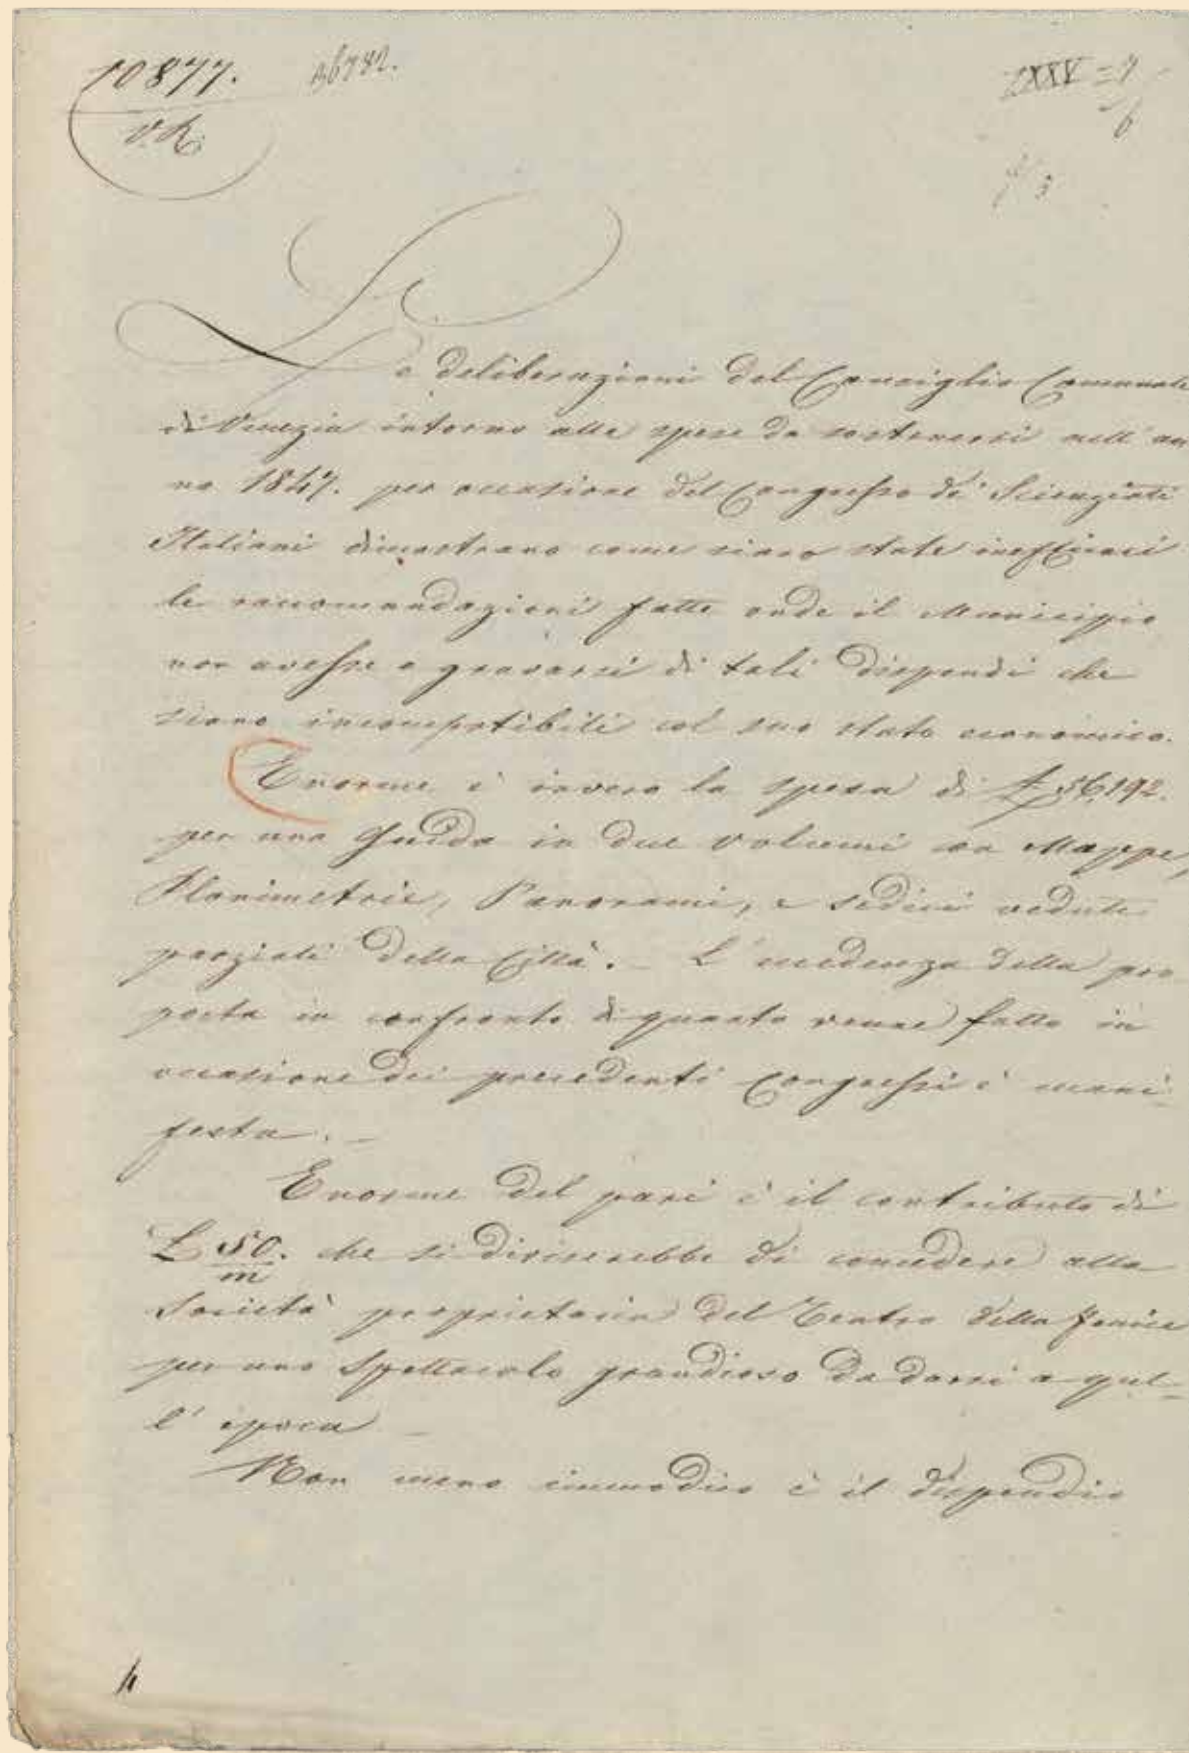 10877.
V.R.
Le deliberazioni del Consiglio Comunale
di Venezia intorno alle spese da sostenersi nell'an
no 1847. per occasione del Congresso de' Scienziati
Italiani dimostrano come siano state inefficaci
le raccomandazioni fatte onde il Municipio
non avesse a gravarsi di tali dispendi che
siano incompatibili col suo stato economico.
Enorme è invero la spesa di £ 56,192.
per una Guida in due volumi con Mappe,
Planimetrie, Panorami, e sedici vedute
parziali della Città. _ L'eccedenza della pro
posta in confronto di quanto venne fatto in
occasione dei precedenti Congressi è mani
festa. _
Enorme del pari è il contributo di
£ 50. che si diviserebbe di concedere alla
m
Società proprietaria del Teatro della Fenice
per uno Spettacolo grandioso da darsi a quel-
l'epoca _
Non meno immodico è il dispendio